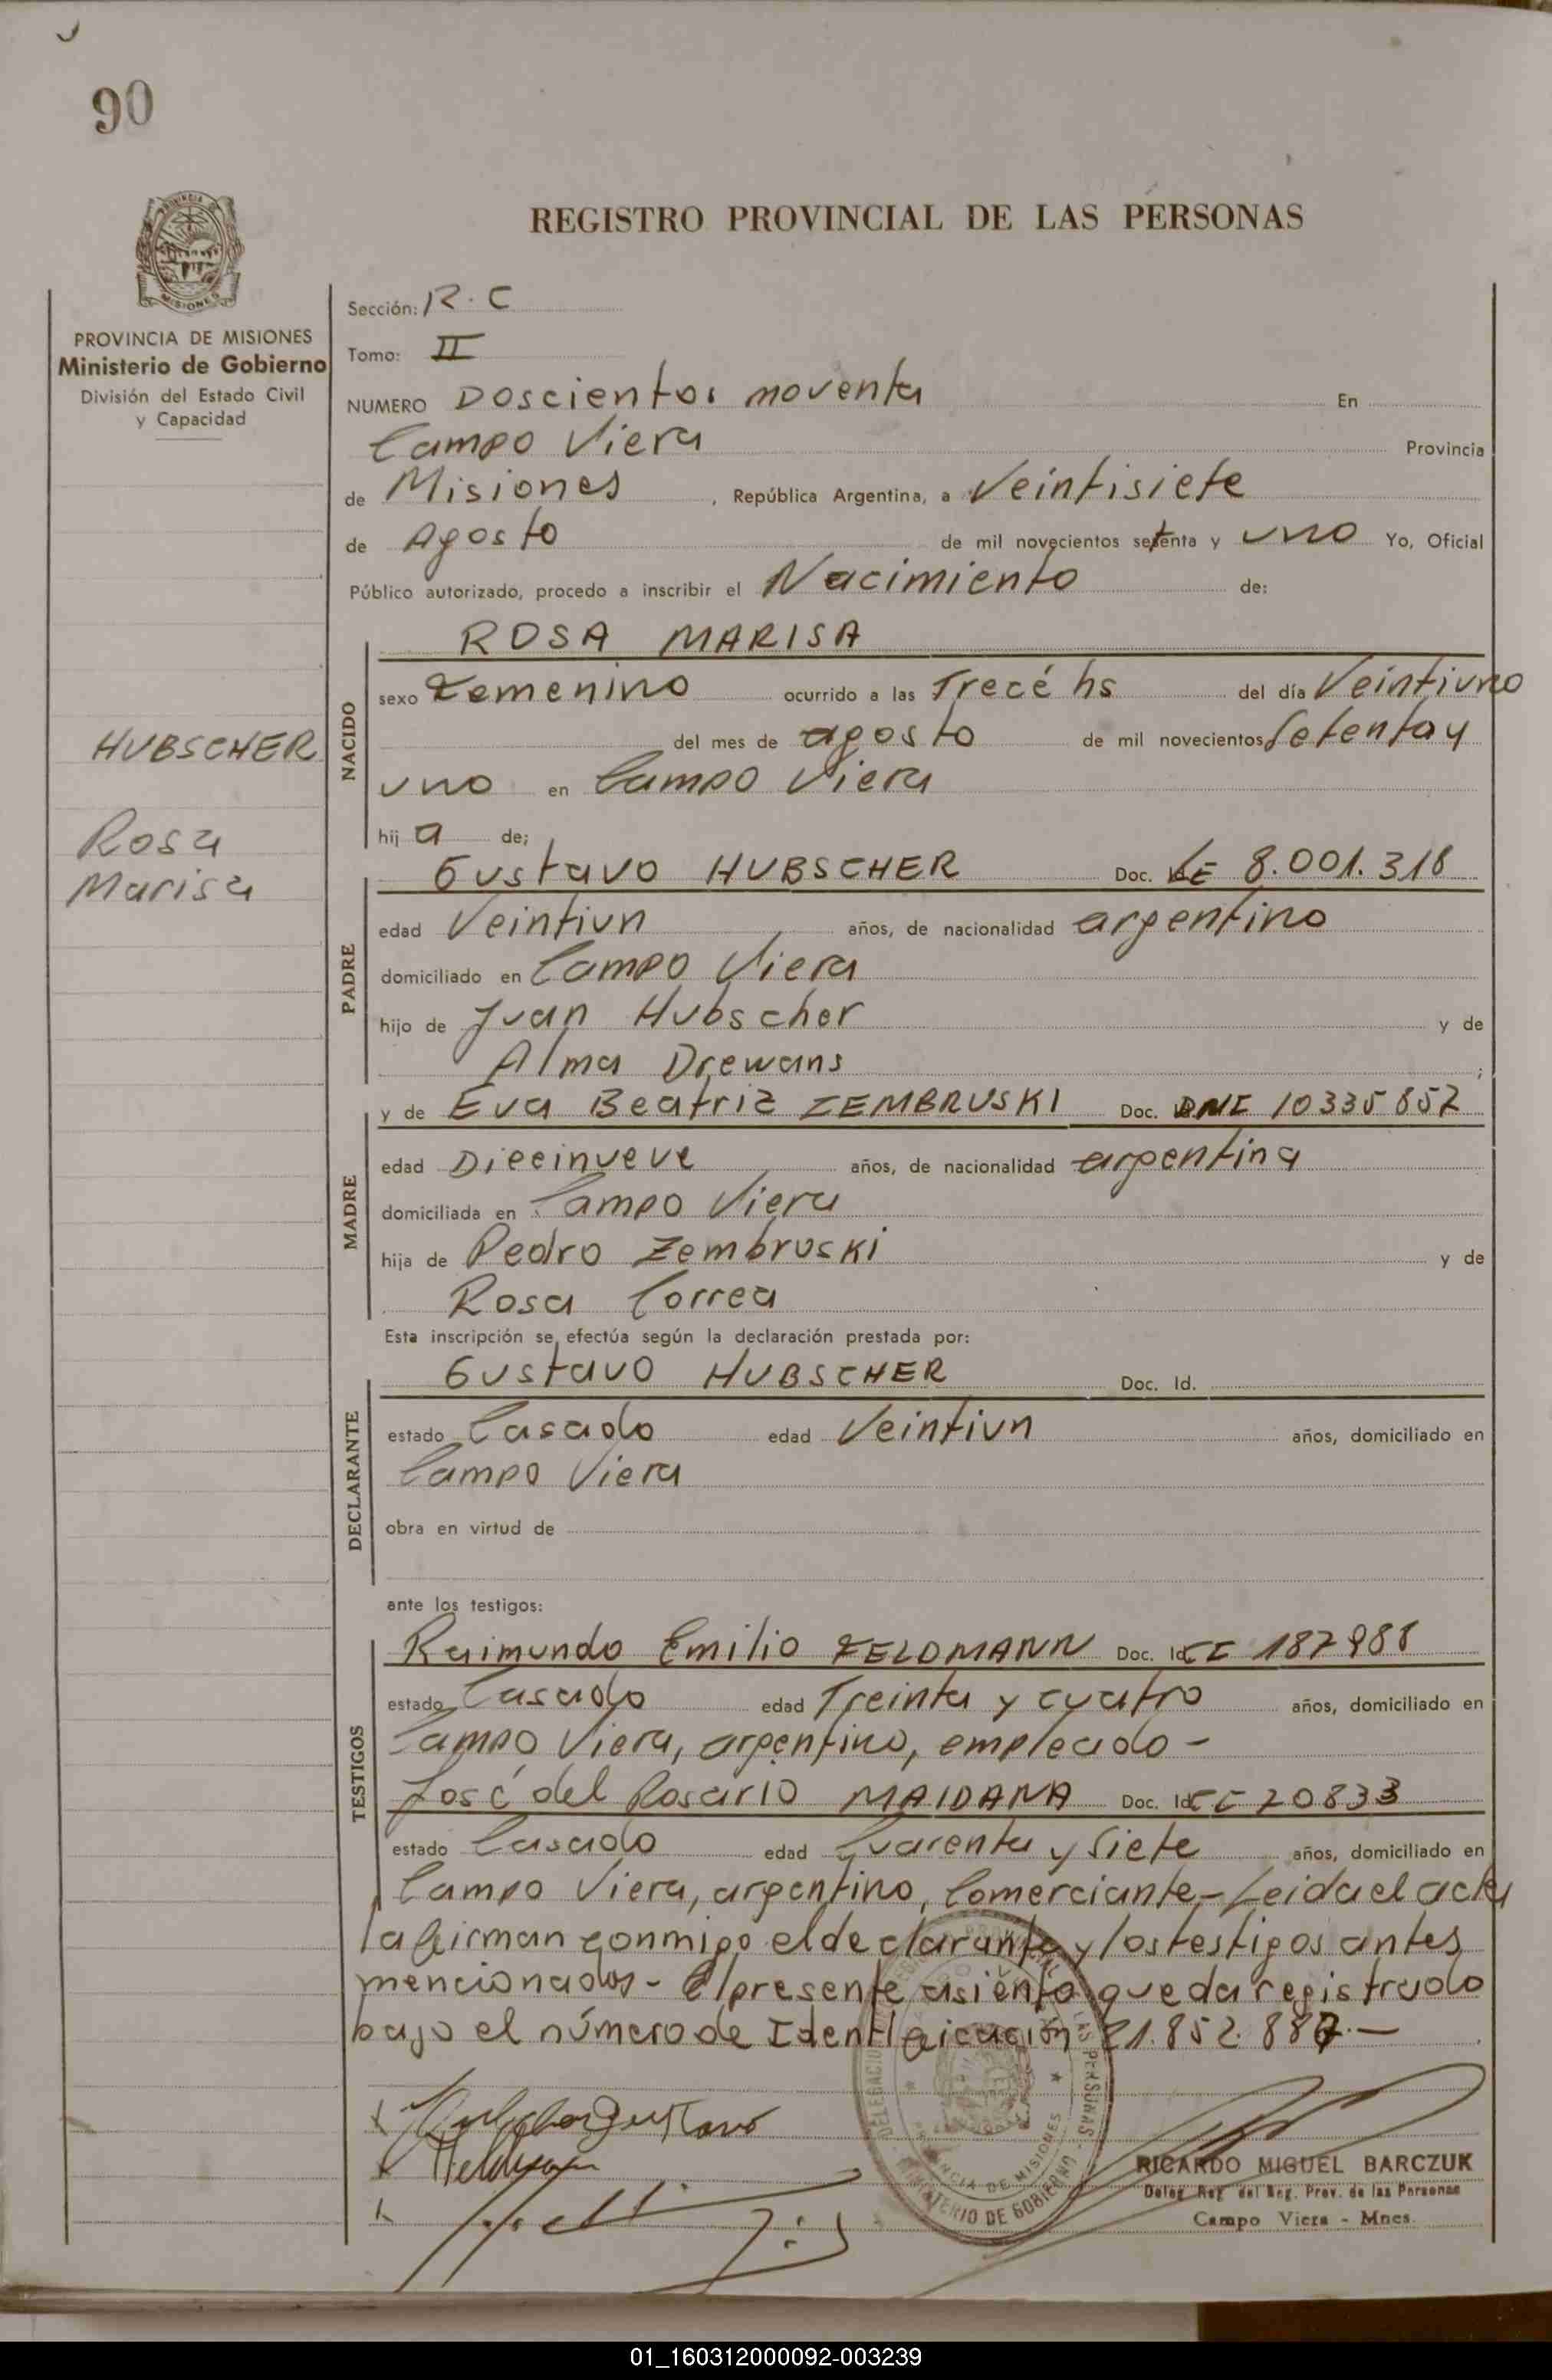 90
REGISTRO PROVINCIAL DE LAS PERSONAS
PROVINCIA DE MISIONES
Ministerio de Gobierno
División del Estado Civil
y Capacidad
Sección: R.C
Tomo: II
NUMERO Doscientos noventa En
Campo Viera Provincia
de Misiones, República Argentina, a Veintisiete
de Agosto de mil novecientos setenta y uno Yo, Oficial
Público autorizado, procedo a inscribir el Nacimiento de:
ROSA MARISA
NACIDO
sexo Femenino ocurrido a las Trecé hs del día Veintiuno
del mes de agosto de mil novecientos Setenta y
uno en Campo Viera
HUBSCHER
Rosa
Marisa
hij a de;
Gustavo HUBSCHER Doc. LE 8.001.318
PADRE
edad Veintiun años, de nacionalidad argentino
domiciliado en Campo Viera
hijo de Juan Hubscher y de
Alma Drewans ;
y de Eva Beatriz ZEMBRUSKI Doc. DNI 10335852
MADRE
edad Diecinueve años, de nacionalidad argentina
domiciliada en Campo Viera
hija de Pedro Zembruski y de
Rosa Correa
Esta inscripción se efectúa según la declaración prestada por:
Gustavo HUBSCHER Doc. Id.
DECLARANTE
estado Casado edad Veintiun años, domiciliado en
Campo Viera
obra en virtud de
ante los testigos:
TESTIGOS
Raimundo Emilio FELDMANN Doc. Id. CI 187988
estado Casado edad Treinta y cuatro años, domiciliado en
Campo Viera, argentino, empleado -
José del Rosario MAIDANA Doc. Id. CI 20833
estado Casado edad Cuarenta y Siete años, domiciliado en
Campo Viera, argentino, Comerciante - Leida el acta
la firman conmigo el declarante y los testigos antes
mencionados - El presente asiento queda registrado
bajo el número de Identificación 21.852.887.—
Hubscher Gustavo
Feldmann
MINISTERIO DE GOBIERNO
PROVINCIA DE MISIONES
RICARDO MIGUEL BARCZUK
Deleg. Reg. del Reg. Prov. de las Personas
Campo Viera - Mnes.
01_160312000092-003239